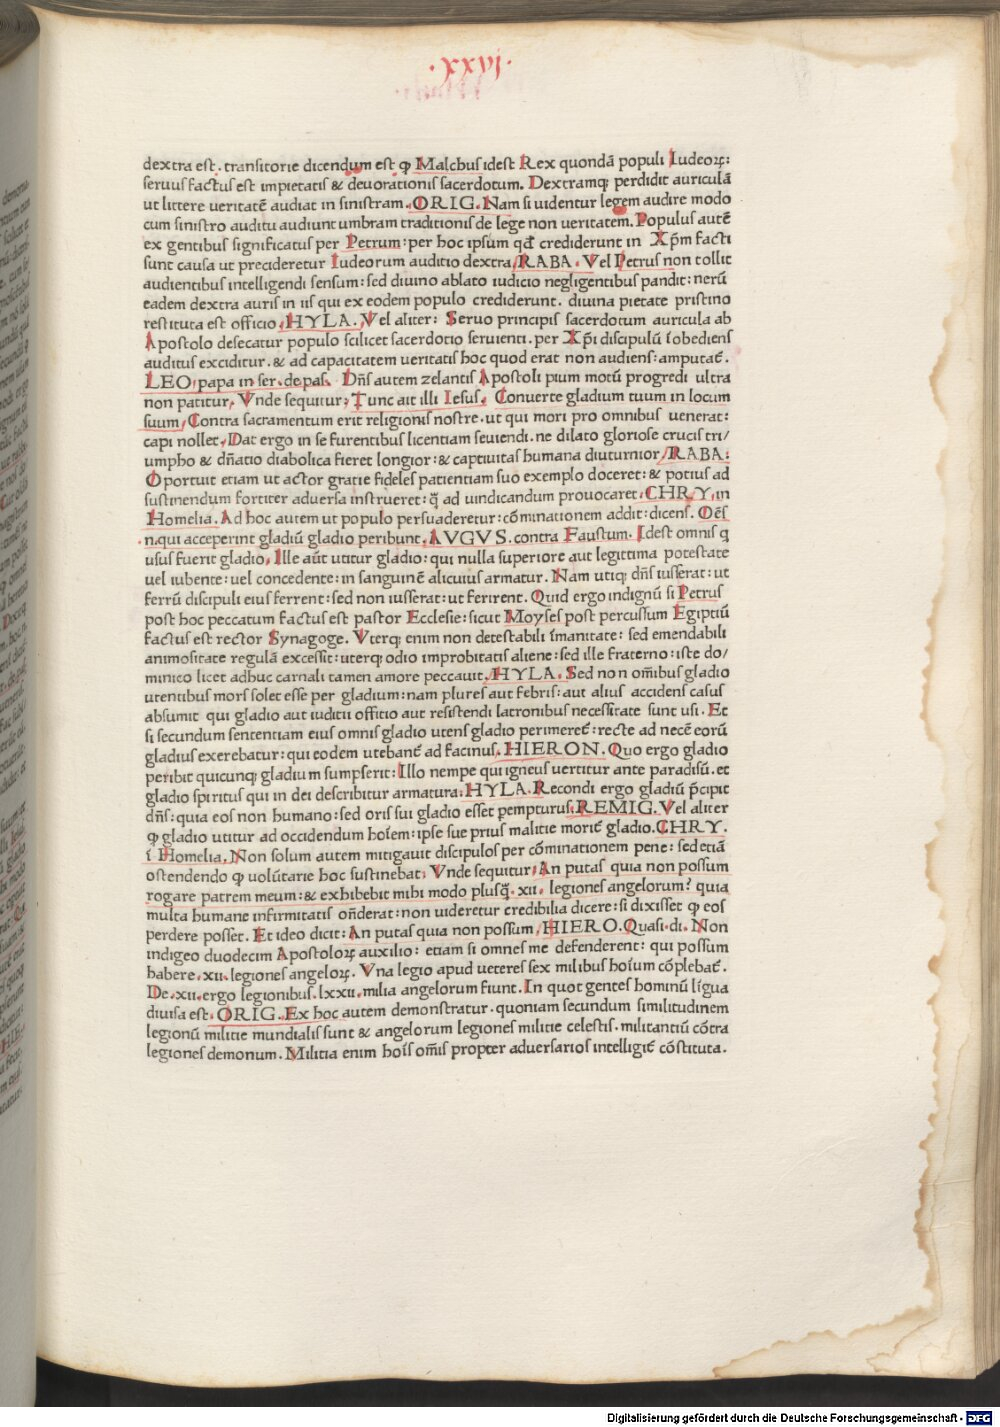 .xxvj.
dextra est. transitorie dicendum est ꝙ Malchus idest Rex quondā populi Iudeoꝝ:
seruus factus est impietatis & deuorationis sacerdotum. Dextramqꝫ perdidit auriculā
ut littere ueritatē audiat in sinistram. ORIG. Nam si uidentur legem audire modo
cum sinistro auditu audiunt umbram traditionis de lege non ueritatem. Populus autē
ex gentibus significatus per Petrum: per hoc ipsum qđ crediderunt in Xp̄m facti
sunt causa ut precideretur Iudeorum auditio dextra, RABA. Vel Petrus non tollit
audientibus intelligendi sensum: sed diuino ablato iudicio negligentibus pandit: nerū
eadem dextra auris in iis qui ex eodem populo crediderunt. diuina pietate pristino
restituta est officio, HYLA. Vel aliter: Seruo principis sacerdotum auricula ab
Apostolo desecatur populo scilicet sacerdotio seruienti. per Xp̄i discipulū īobediens
auditus exciditur. & ad capacitatem ueritatis hoc quod erat non audiens: amputat̄.
LEO, papa in ser. de pas. Dn̄s autem zelantis Apostoli pium motū progredi ultra
non patitur, Vnde sequitur: Tunc ait illi Iesus, Conuerte gladium tuum in locum
suum, Contra sacramentum erit religionis nostre. ut qui mori pro omnibus uenerat:
capi nollet, Dat ergo in se furentibus licentiam seuiendi. ne dilato gloriose crucis tri/
umpho & dn̄atio diabolica fieret longior: & captiuitas humana diuturnior, RABA:
Oportuit etiam ut actor gratie fideles patientiam suo exemplo doceret: & potius ad
sustinendum fortiter aduersa instrueret: q̄ ad uindicandum prouocaret, CHRY, in
Homelia. Ad hoc autem ut populo persuaderetur: cōminationem addit: dicens. Oēs
.n. qui acceperint gladiū gladio peribunt, AVGVS. contra Faustum. Idest omnis q
usus fuerit gladio, Ille aūt utitur gladio: qui nulla superiore aut legittima potestate
uel iubente: uel concedente: in sanguinē alicuius armatur. Nam utiqꝫ dn̄s iusserat: ut
ferrū discipuli eius ferrent: sed non iusserat: ut ferirent. Quid ergo indignū si Petrus
post hoc peccatum factus est pastor Ecclesie: sicut Moyses post percussum Egiptiū
factus est rector Synagoge. Vterqꝫ enim non detestabili īmanitate: sed emendabili
animositate regulā excessit: uterqꝫ odio improbitatis aliene: sed ille fraterno: iste do/
minico licet adhuc carnali tamen amore peccauit, HYLA, Sed non om̄ibus gladio
utentibus mors solet esse per gladium: nam plures aut febris: aut alius accidens casus
absumit qui gladio aut iuditii offitio aut resistendi latronibus necessitate sunt usi. Et
si secundum sententiam eius omnis gladio utens gladio perimeret̄: recte ad necē eorū
gladius exerebatur: qui eodem utebant̄ ad facinus, HIERON. Quo ergo gladio
peribit quicunqꝫ gladium sumpserit: Illo nempe qui igneus uertitur ante paradisū. et
gladio spiritus qui in dei describitur armatura: HYLA. Recondi ergo gladiū p̄cipit
dn̄s: quia eos non humano: sed oris sui gladio esset ꝑempturus, REMIG. Vel aliter
ꝙ gladio utitur ad occidendum hoīem: ipse sue prius malitie morit̄ gladio. CHRY.
ī Homelia, Non solum autem mitigauit discipulos per cōminationem pene: sed etiā
ostendendo ꝙ uolūtarie hoc sustinebat: Vnde sequitur: An putas quia non possum
rogare patrem meum: & exhibebit mihi modo plusq̄. xii. legiones angelorum? quia
multa humane infirmitatis on̄derat: non uideretur credibilia dicere: si dixisset ꝙ eos
perdere posset. Et ideo dicit: An putas quia non possum, HIERO. Quasi. di. Non
indigeo duodecim Apostoloꝝ auxilio: etiam si omnes me defenderent: qui possum
habere. xii. legiones angeloꝝ. Vna legio apud ueteres sex milibus hoīum cōplebat̄.
De. xii. ergo legionibus. lxxii. milia angelorum fiunt. In quot gentes hominū līgua
diuisa est. ORIG. Ex hoc autem demonstratur. quoniam secundum similitudinem
legionū militie mundialis sunt & angelorum legiones militie celestis. militantiū cōtra
legiones demonum. Militia enim hoīs om̄is propter aduersarios intelligit̄ cōstituta.
Digitalisierung gefördert durch die Deutsche Forschungsgemeinschaft - DFG